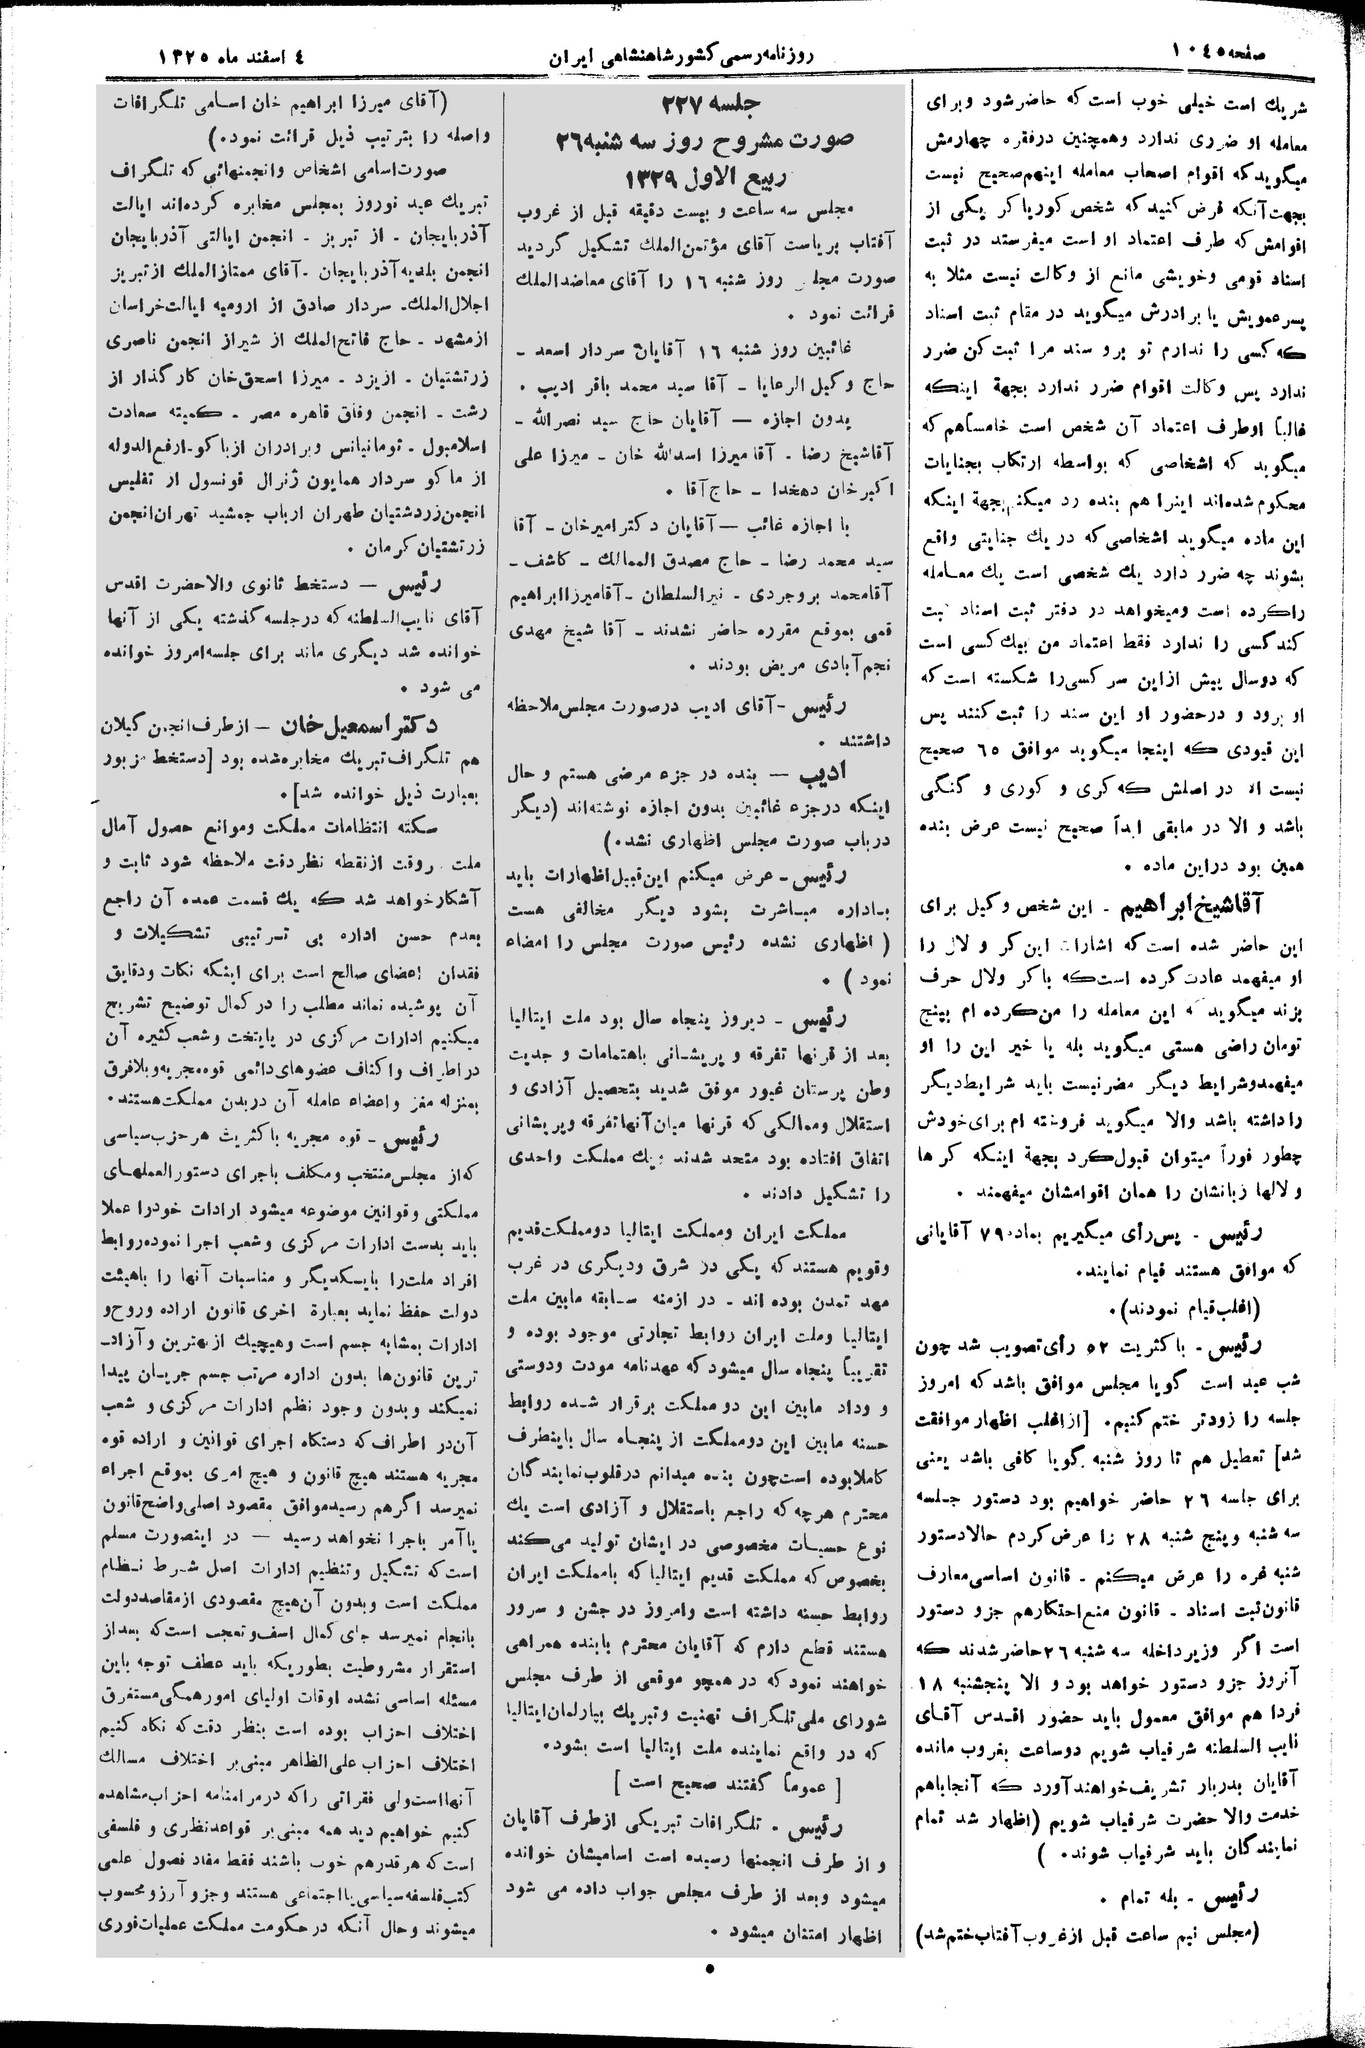 صفحه ۱۰۴۵
روزنامه رسمی کشور شاهنشاهی ایران
٤ اسفند ماه ۱۳۲۵
شریك است خیلی خوب است که حاضر شود و برای
معامله او ضرری ندارد وهمچنین درفقره چهارمش
میگوید که اقوام اصحاب معامله اینهم صحیح نیست
بجهت آنکه فرض کنید که شخص کور یا کر یکی از
اقوامش که طرف اعتماد او است میفرستد در ثبت
اسناد قومی وخویشی مانع از وکالت نیست مثلا به
پسرعمویش یا برادرش میگوید در مقام ثبت اسناد
که کسی را ندارم تو برو سند مرا ثبت کن ضرر
ندارد پس وکالت اقوام ضرر ندارد بجهة اینکه
غالباً اوطرف اعتماد آن شخص است خامساً هم که
میگوید که اشخاصی که بواسطه ارتکاب بجنایات
محکوم شده‌اند اینرا هم بنده رد میکنم بجهة اینکه
این ماده میگوید اشخاصی که در یك جنایتی واقع
بشوند چه ضرر دارد یك شخصی است یك معامله
راکرده است ومیخواهد در دفتر ثبت اسناد ثبت
کند کسی را ندارد فقط اعتماد من بیك کسی است
که دوسال پیش ازاین سر کسی را شکسته است که
او برود و درحضور او این سند را ثبت کنند پس
این قیودی که اینجا میگوید موافق ٦٥ صحیح
نیست الا در اصلش که کری و کوری و گنگی
باشد و الا در مابقی ابداً صحیح نیست عرض بنده
همین بود دراین ماده .
آقا شیخ ابراهیم ـ این شخص وکیل برای
این حاضر شده است که اشارات این کر و لال را
او میفهمد عادت کرده است که باکر ولال حرف
بزند میگوید که این معامله را من کرده ام بپنج
تومان راضی هستی میگوید بله یا خیر این را او
میفهمد وشرایط دیگر مضر نیست باید شرایط دیگر
را داشته باشد والا میگوید فروخته ام برای خودش
چطور فوراً میتوان قبول کرد بجهة اینکه کرها
و لالها زبانشان را همان اقوامشان میفهمند .
رئیس ـ پس رأی میگیریم بماده ۷۹ آقایانی
که موافق هستند قیام نمایند.
(اغلب قیام نمودند).
رئیس ـ باکثریت ۵۲ رأی تصویب شد چون
شب عید است گویا مجلس موافق باشد که امروز
جلسه را زودتر ختم کنیم. [از اغلب اظهار موافقت
شد] تعطیل هم تا روز شنبه گویا کافی باشد یعنی
برای جلسه ۲٦ حاضر خواهیم بود دستور جلسه
سه شنبه و پنج شنبه ۲۸ را عرض کردم حالا دستور
شنبه غره را عرض میکنم ـ قانون اساسی معارف
قانون ثبت اسناد ـ قانون منع احتکارهم جزو دستور
است اگر وزیر داخله سه شنبه ۲٦ حاضر شدند که
آنروز جزو دستور خواهد بود و الا پنجشنبه ۱۸
فردا هم موافق معمول باید حضور اقدس آقای
نایب السلطنه شرفیاب شویم دوساعت بغروب مانده
آقایان بدربار تشریف خواهند آورد که آنجا باهم
خدمت والا حضرت شرفیاب شویم (اظهار شد تمام
نمایندگان باید شرفیاب شوند. )
رئیس ـ بله تمام .
(مجلس نیم ساعت قبل از غروب آفتاب ختم شد)
جلسه ۲۲۷
صورت مشروح روز سه شنبه ۲٦
ربیع الاول ۱۳۲۹
مجلس سه ساعت و بیست دقیقه قبل از غروب
آفتاب بریاست آقای مؤتمن‌الملك تشکیل گردید
صورت مجلس روز شنبه ۱٦ را آقای معاضدالملك
قرائت نمود .
غائبین روز شنبه ۱٦ آقایان سردار اسعد ـ
حاج وکیل الرعایا ـ آقا سید محمد باقر ادیب .
بدون اجازه — آقایان حاج سید نصرالله ـ
آقاشیخ رضا ـ آقا میرزا اسدالله خان ـ میرزا علی
اکبر خان دهخدا ـ حاج آقا .
با اجازه غائب — آقایان دکتر امیرخان ـ آقا
سید محمد رضا ـ حاج مصدق الممالك ـ کاشف ـ
آقامحمد بروجردی ـ نیرالسلطان ـ آقامیرزا ابراهیم
قمی بموقع مقرره حاضر نشدند ـ آقا شیخ مهدی
نجم‌آبادی مریض بودند .
رئیس ـ آقای ادیب درصورت مجلس ملاحظه
داشتند .
ادیب — بنده در جزء مرضی هستم و حال
اینکه درجزء غائبین بدون اجازه نوشته‌اند (دیگر
درباب صورت مجلس اظهاری نشد.)
رئیس ـ عرض میکنم این قبیل اظهارات باید
باداره مباشرت بشود دیگر مخالفی هست
( اظهاری نشده رئیس صورت مجلس را امضاء
نمود ) .
رئیس ـ دیروز پنجاه سال بود ملت ایتالیا
بعد از قرنها تفرقه و پریشانی باهتمامات و جدیت
وطن پرستان غیور موفق شدید بتحصیل آزادی و
استقلال وممالکی که قرنها میان آنها تفرقه و پریشانی
اتفاق افتاده بود متحد شدند و یك مملکت واحدی
را تشکیل دادند .
مملکت ایران ومملکت ایتالیا دو مملکت قدیم
وقویم هستند که یکی در شرق ودیگری در غرب
مهد تمدن بوده اند ـ در ازمنه سابقه مابین ملت
ایتالیا وملت ایران روابط تجارتی موجود بوده و
تقریباً پنجاه سال میشود که عهدنامه مودت ودوستی
و وداد مابین این دو مملکت برقرار شده روابط
حسنه مابین این دومملکت از پنجاه سال باینطرف
کاملا بوده است چون بنده میدانم درقلوب نمایندگان
محترم هرچه که راجع باستقلال و آزادی است یك
نوع حسیات مخصوصی در ایشان تولید می‌کند
بخصوص که مملکت قدیم ایتالیا که بامملکت ایران
روابط حسنه داشته است وامروز در جشن و سرور
هستند قطع دارم که آقایان محترم بابنده همراهی
خواهند نمود که در همچو موقعی از طرف مجلس
شورای ملی تلگراف تهنیت وتبریك بپارلمان ایتالیا
که در واقع نماینده ملت ایتالیا است بشود.
[ عموماً گفتند صحیح است ]
رئیس . تلگرافات تبریکی از طرف آقایان
و از طرف انجمنها رسیده است اسامیشان خوانده
میشود وبعد از طرف مجلس جواب داده می شود
اظهار امتنان میشود .
(آقای میرزا ابراهیم خان اسامی تلگرافات
واصله را بترتیب ذیل قرائت نمود.)
صورت اسامی اشخاص وانجمنهائی که تلگراف
تبریك عید نوروز بمجلس مخابره کرده‌اند ایالت
آذربایجان ـ از تبریز ـ انجمن ایالتی آذربایجان
انجمن بلدیه آذربایجان ـ آقای ممتازالملك از تبریز
اجلال‌الملك ـ سردار صادق از ارومیه ایالت خراسان
از مشهد ـ حاج فاتح‌الملك از شیراز انجمن ناصری
زرتشتیان ـ از یزد ـ میرزا اسحق خان کارگذار از
رشت ـ انجمن وفاق قاهره مصر ـ کمیته سعادت
اسلامبول ـ تومانیانس و برادران از باکو ـ ارفع‌الدوله
از ماکو سردار همایون ژنرال قونسول از تفلیس
انجمن زردشتیان طهران ارباب جمشید تهران انجمن
زرتشتیان کرمان .
رئیس — دستخط ثانوی والاحضرت اقدس
آقای نایب‌السلطنه که درجلسه گذشته یکی از آنها
خوانده شد دیگری ماند برای جلسه امروز خوانده
می شود .
دکتر اسمعیل خان — از طرف انجمن گیلان
هم تلگراف تبریك مخابره شده بود [دستخط مزبور
بعبارت ذیل خوانده شد] .
سکته انتظامات مملکت وموانع حصول آمال
ملت هروقت از نقطه نظر دقت ملاحظه شود ثابت و
آشکار خواهد شد که یك قسمت عمده آن راجع
بعدم حسن اداره بی ترتیبی تشکیلات و
فقدان اعضای صالح است برای اینکه نکات ودقایق
آن پوشیده نماند مطلب را در کمال توضیح تشریح
میکنیم ادارات مرکزی در پایتخت وشعب کثیره آن
در اطراف واکناف عضوهای دائمی قوه مجریه وبلافرق
بمنزله مغز واعضاء عامله آن دربدن مملکت هستند.
رئیس ـ قوه مجریه باکثریت هرحزب سیاسی
که از مجلس منتخب ومکلف باجرای دستورالعملهای
مملکتی وقوانین موضوعه میشود ارادات خودرا عملا
باید بدست ادارات مرکزی وشعب اجرا نموده روابط
افراد ملت را بایکدیگر و مناسبات آنها را باهیئت
دولت حفظ نماید بعبارة اخری قانون اراده و روح و
ادارات بمشابه جسم است وهیچیك از بهترین وآزاد ـ
ترین قانون‌ها بدون اداره مرتب جسم جریان پیدا
نمیکند وبدون وجود نظم ادارات مرکزی و شعب
آن در اطراف که دستگاه اجرای قوانین و اراده قوه
مجریه هستند هیچ قانون و هیچ امری بموقع اجراء
نمیرسد اگرهم رسید موافق مقصود اصلی واضح قانون
یا آمر باجرا نخواهد رسید — در اینصورت مسلم
است که تشکیل وتنظیم ادارات اصل شرط نظام
مملکت است وبدون آن هیچ مقصودی از مقاصد دولت
بانجام نمیرسد جای کمال اسف وتعجب است که بعد از
استقرار مشروطیت بطوریکه باید عطف توجه باین
مسئله اساسی نشده اوقات اولیای امور همگی مستغرق
اختلاف احزاب بوده است بنظر دقت که نگاه کنیم
اختلاف احزاب علی‌الظاهر مبنی بر اختلاف مسالك
آنها است ولی فقراتی را که در مرامنامه احزاب مشاهده
کنیم خواهیم دید همه مبنی بر قواعد نظری و فلسفی
است که هر قدر هم خوب باشند فقط مفاد فصول علمی
کتب فلسفه سیاسی یا اجتماعی هستند و جزو آرزو محسوب
میشوند وحال آنکه در حکومت مملکت عملیات فوری